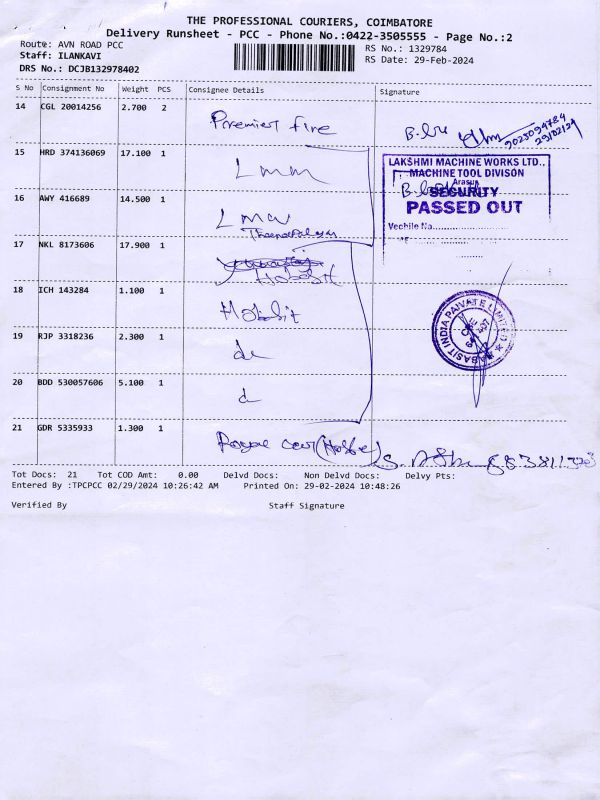 THE PROFESSIONAL COURIERS, COIMBATORE
Delivery Runsheet - PCC - Phone No.:0422-3505555 - Page No.:2
Route: AVN ROAD PCC
Staff: ILANKAVI
DRS No.: DCJB132978402
RS No.: 1329784
RS Date: 29-Feb-2024
S No Consignment No Weight PCS Consignee Details Signature
14 CGL 20014256 2.700 2 Premier fire
9025094784
29/02/24
15 HRD 374136069 17.100 1 Lmm
LAKSHMI MACHINE WORKS LTD.,
MACHINE TOOL DIVISON
Arasur
SECURITY
PASSED OUT
Vechile No.
16 AWY 416689 14.500 1 LMW
17 NKL 8173606 17.900 1 Habasit
18 ICH 143284 1.100 1 Habasit
HABASIT INDIA PRIVATE LIMITED
19 RJP 3318236 2.300 1 do
20 BDD 530057606 5.100 1
21 GDR 5335933 1.300 1
Tot Docs: 21 Tot COD Amt: 0.00 Delvd Docs: Non Delvd Docs: Delvy Pts:
Entered By :TPCPCC 02/29/2024 10:26:42 AM Printed On: 29-02-2024 10:48:26
Verified By Staff Signature